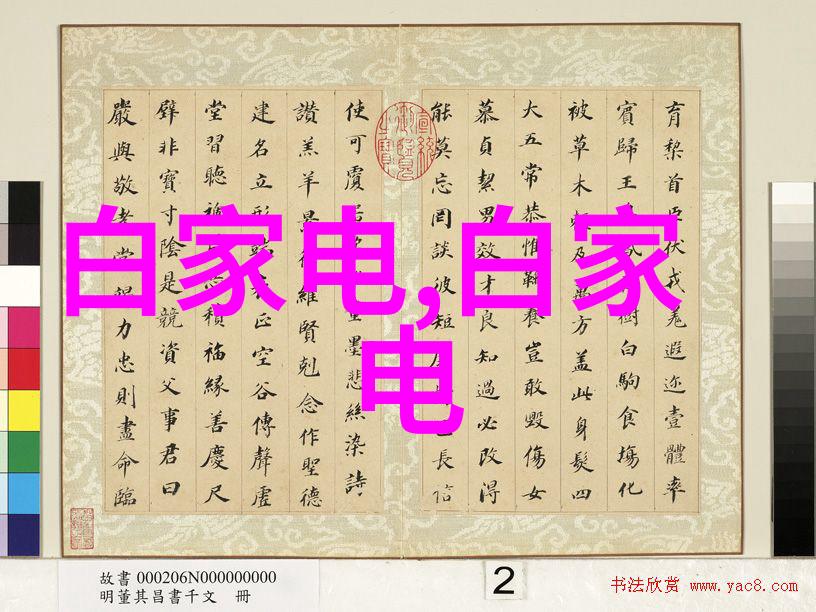 育棃首臣伏戎羌遐迩壹體率
賓歸王樹白駒食塲化
被草木賴及萬方蓋此身髮四
大五常恭惟鞠養豈敢毀傷女
慕貞絜男效才良知過必改得
能莫忘罔談彼短長信
使可覆量墨悲絲染詩
讚羔羊景行維賢剋念作聖德
建名立形端表正空谷傳聲虛
堂習聽禍積福緣善慶尺
璧非寶寸陰是競資父事君曰
嚴與敬孝當竭力忠則盡命臨
白家电,白家
电
故書 000206N000000000
明董其昌書千文 冊
2
书法欣赏 www.yac8.com